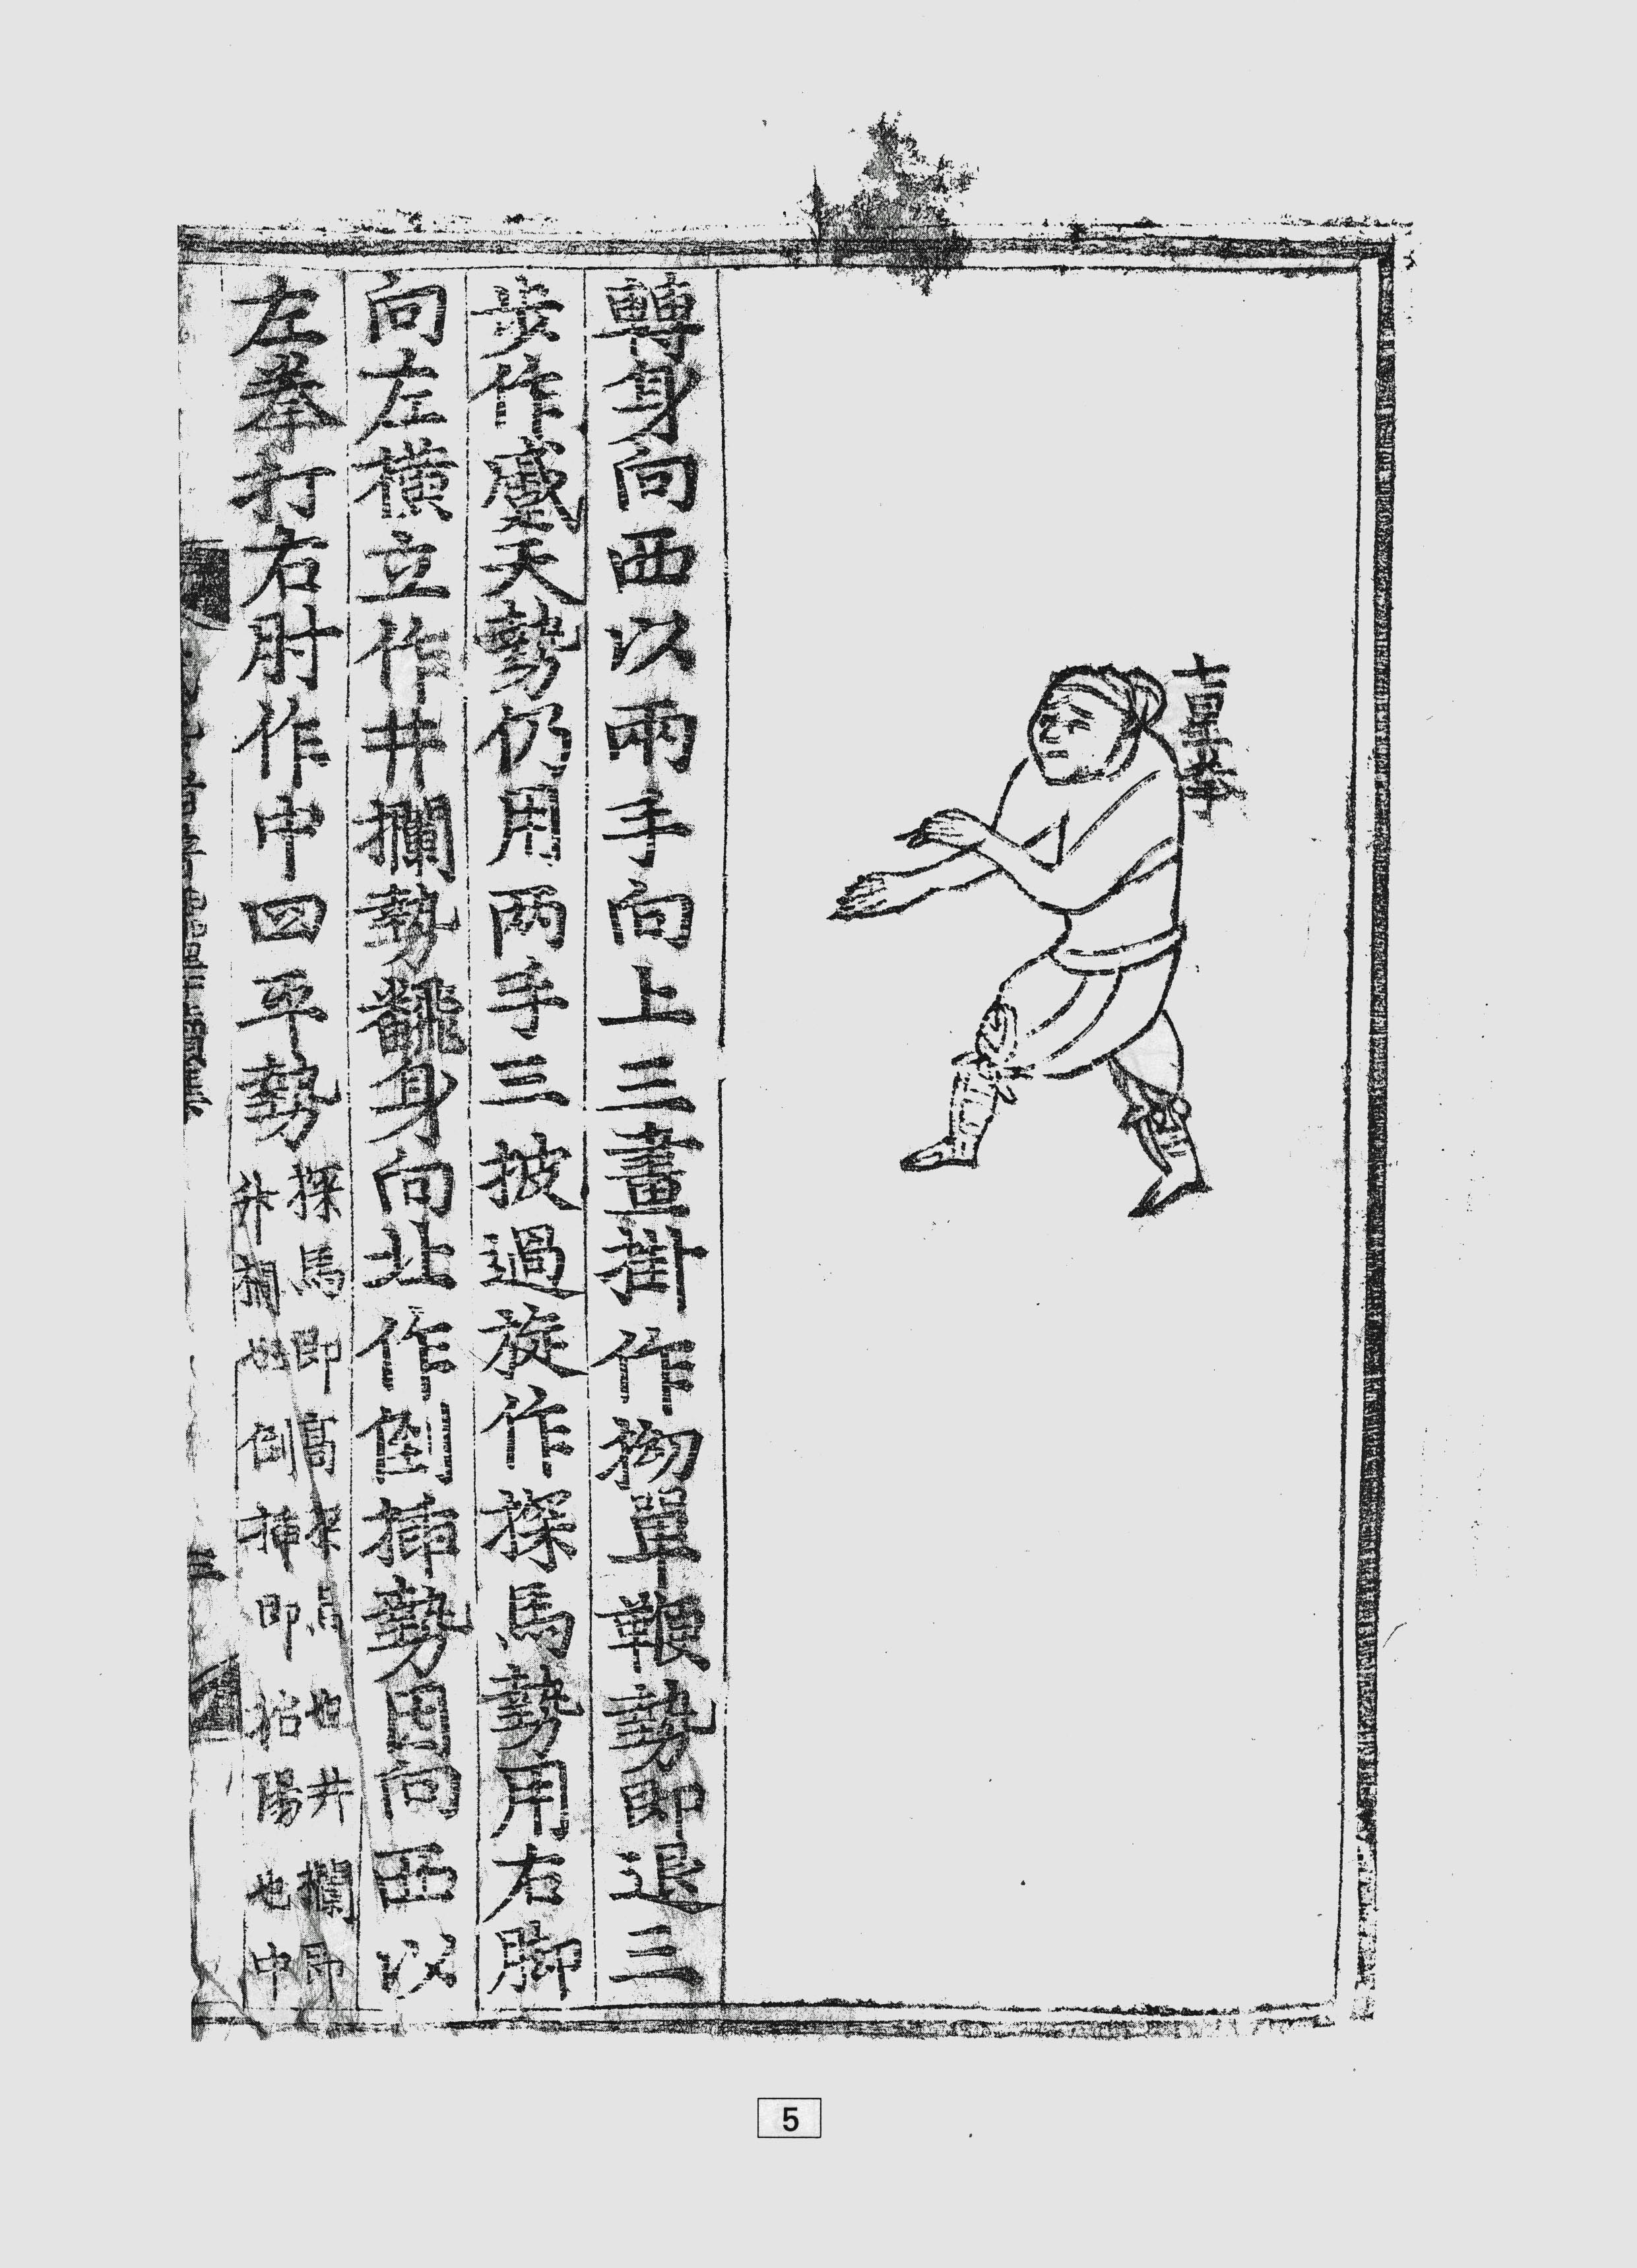 七星拳
轉身向西以兩手向上三畫掛作拗單鞭勢即退三
步作天勢仍用两手三披過旋作探馬勢用右脚
向左横立作井攔勢飜身向北作倒揷勢因向西以
左拳打右肘作中四平勢
探馬即高探馬也井攔即
井也倒揷即招陽也中
三
5